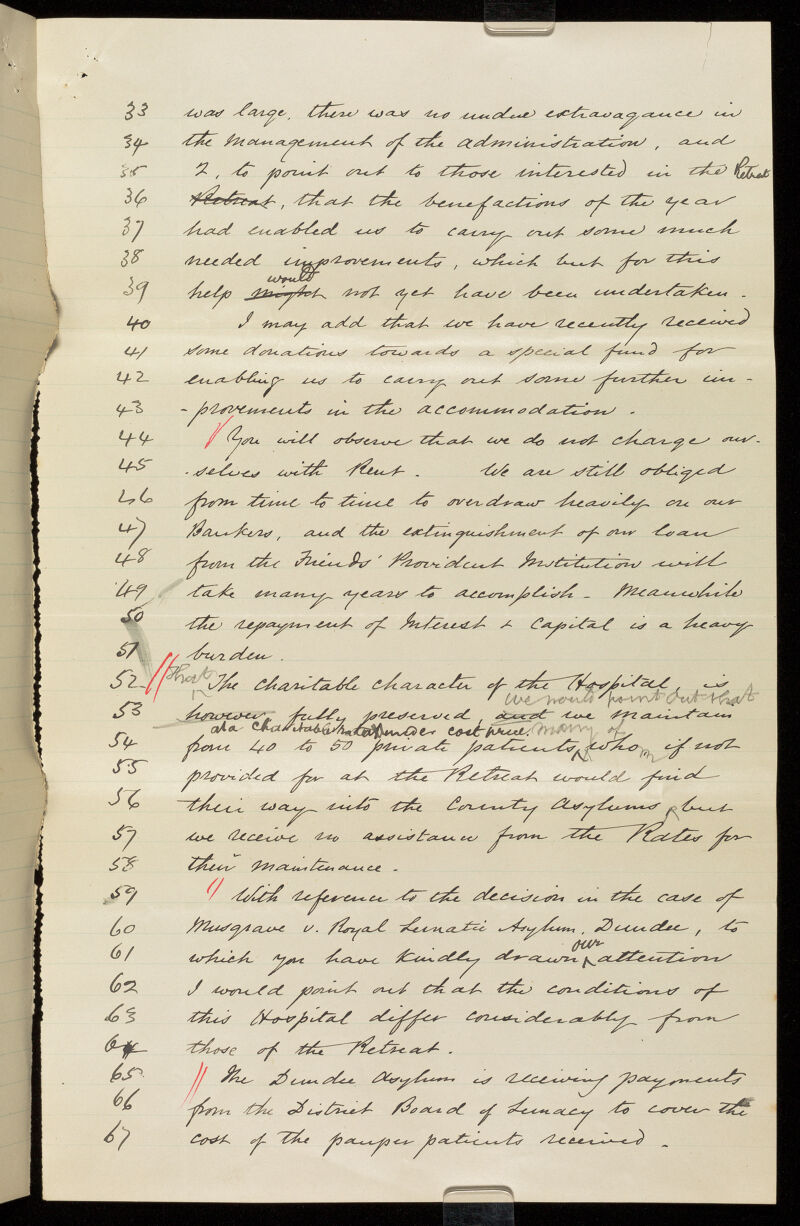 33 was large, there was no undue extravagance in
34 the management of the administration, and
35 2, to point out to those interested in the Retreat
36 Retreat, that the benefactions of the year
37 had enabled us to carry out some much
38 needed improvements, which but for this
would
39 help might not yet have been undertaken.
40 I may add that we have recently received
41 some donations towards a special fund for
42 enabling us to carry out some further im-
43 -provements in the accommodation.
44 // You will observe that we do not charge our-
45 -selves with Rent. We are still obliged
46 from time to time to overdraw heavily on our
47 Bankers, and the extinguishment of our loan
48 from the Friends' Provident Institution will
49 take many years to accomplish - Meanwhile
50 the repayment of Interest & Capital is a heavy
51 burden.
52 // That The charitable character of the Hospital is
we would point out that
53 however fully preserved, and we maintain
at a charitable rate & under cost price. many of
54 from 40 to 50 private patients, who if not
55 provided for at the Retreat would find
56 their way into the County Asylums, but
57 we receive no assistance from the Rates for
58 their maintenance.
59 // With reference to the decision in the case of
60 Musgrave v. Royal Lunatic Asylum, Dundee, to
our
61 which you have kindly drawn attention
62 I would point out that the conditions of
63 this Hospital differ considerably from
64 those of the Retreat.
65 // The Dundee Asylum is receiving payments
66 from the District Board of Lunacy to cover the
67 cost of the pauper patients received.